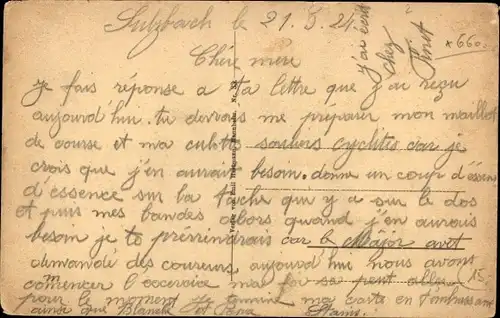 Sulzbach le 21.5.24.
j'ai écrit
chez
Pinet
x660.
Chère mère
Je fais réponse a ta lettre que j'ai reçu
aujourd'hui. tu devrais me préparer mon maillot
de course et ma culotte souliers cyclites car je
crois que j'en aurais besoin. donne un coup d'essence
d'essence sur la tache que y a sur le dos
et puis mes bandes alors quand j'en aurais
besoin je te préviendrais car le Major avet
demandé des coureurs, aujourd'hui nous avons
commencer l'exercice ma foi sa peut aller
pour le moment je termine ma carte en t'embrassant
ainsi que Blanche et Papa
(15